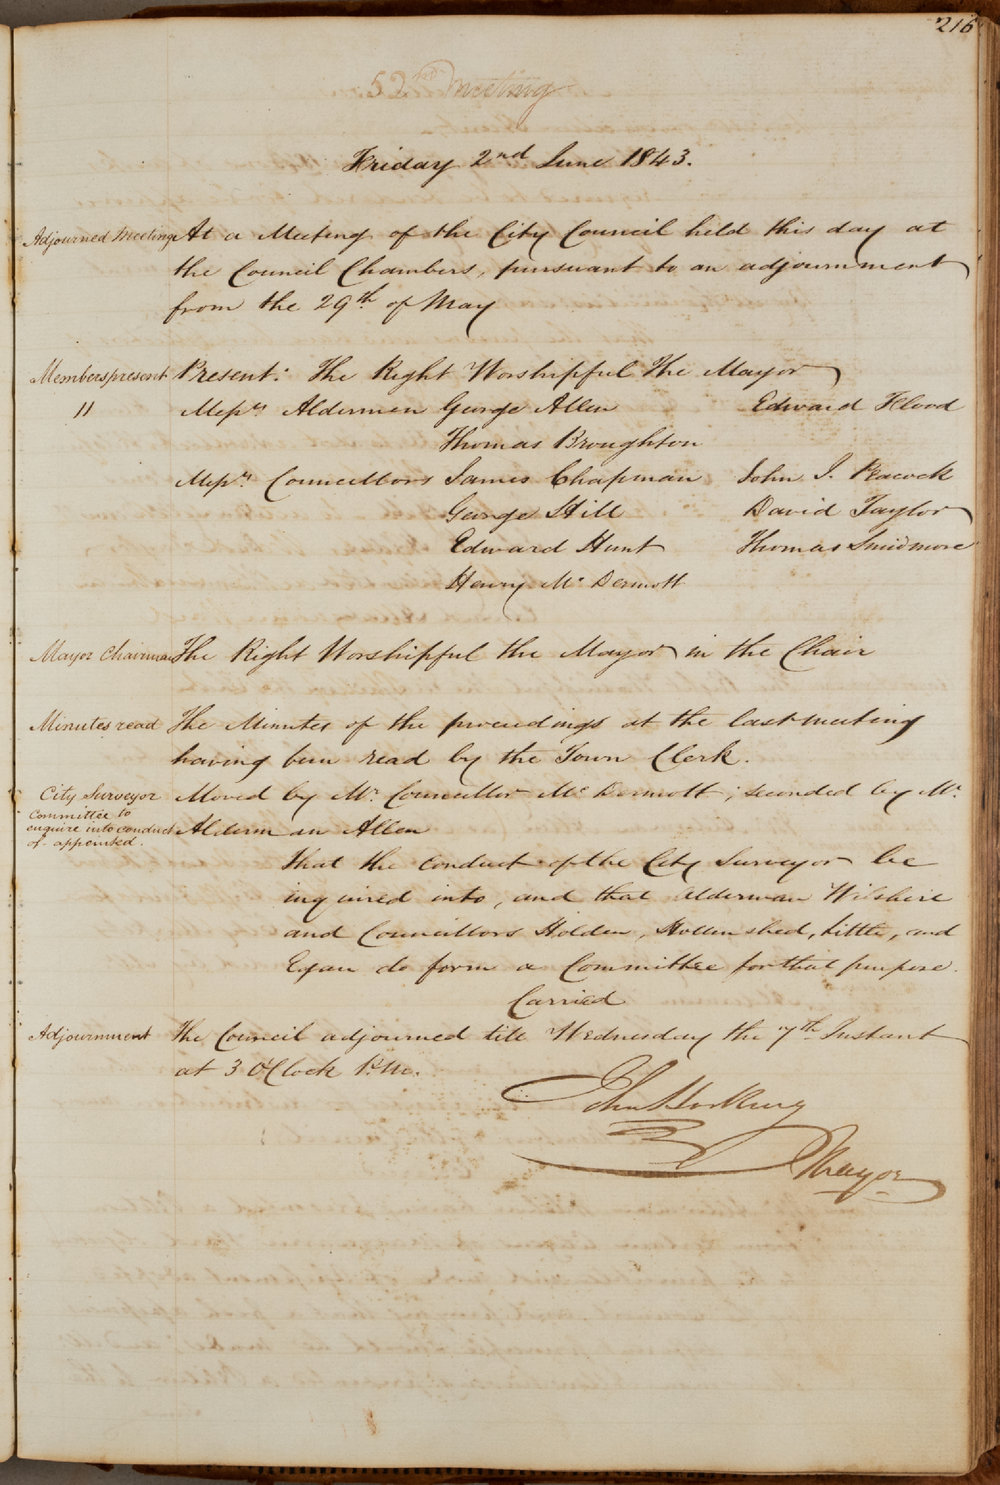 216
52nd Meeting
Friday 2nd June 1843.
Adjourned Meeting At a Meeting of the City Council held this day at
the Council Chambers, pursuant to an adjournment
from the 29th of May
Members present Present: The Right Worshipful The Mayor
11 Messrs Aldermen George Allen Edward Flood
Thomas Broughton
Messrs Councillors James Chapman John J. Peacock
George Hill David Taylor
Edward Hunt Thomas Smidmore
Henry Mc Dermott
Mayor Chairman The Right Worshipful the Mayor in the Chair
Minutes read The Minutes of the proceedings at the last meeting
having been read by the Town Clerk.
City Surveyor Moved by Mr. Councillor Mc Dermott; seconded by Mr.
Committee to
enquire into conduct Alderman Allen
of - appointed.
That the conduct of the City Surveyor be
inquired into, and that Alderman Wilshire
and Councillors Holden, Hollinshed, Little, and
Egan do form a Committee for that purpose.
Carried
Adjournment The Council adjourned till Wednesday the 7th Instant
at 3 O'Clock P.M.
John Hosking
Mayor